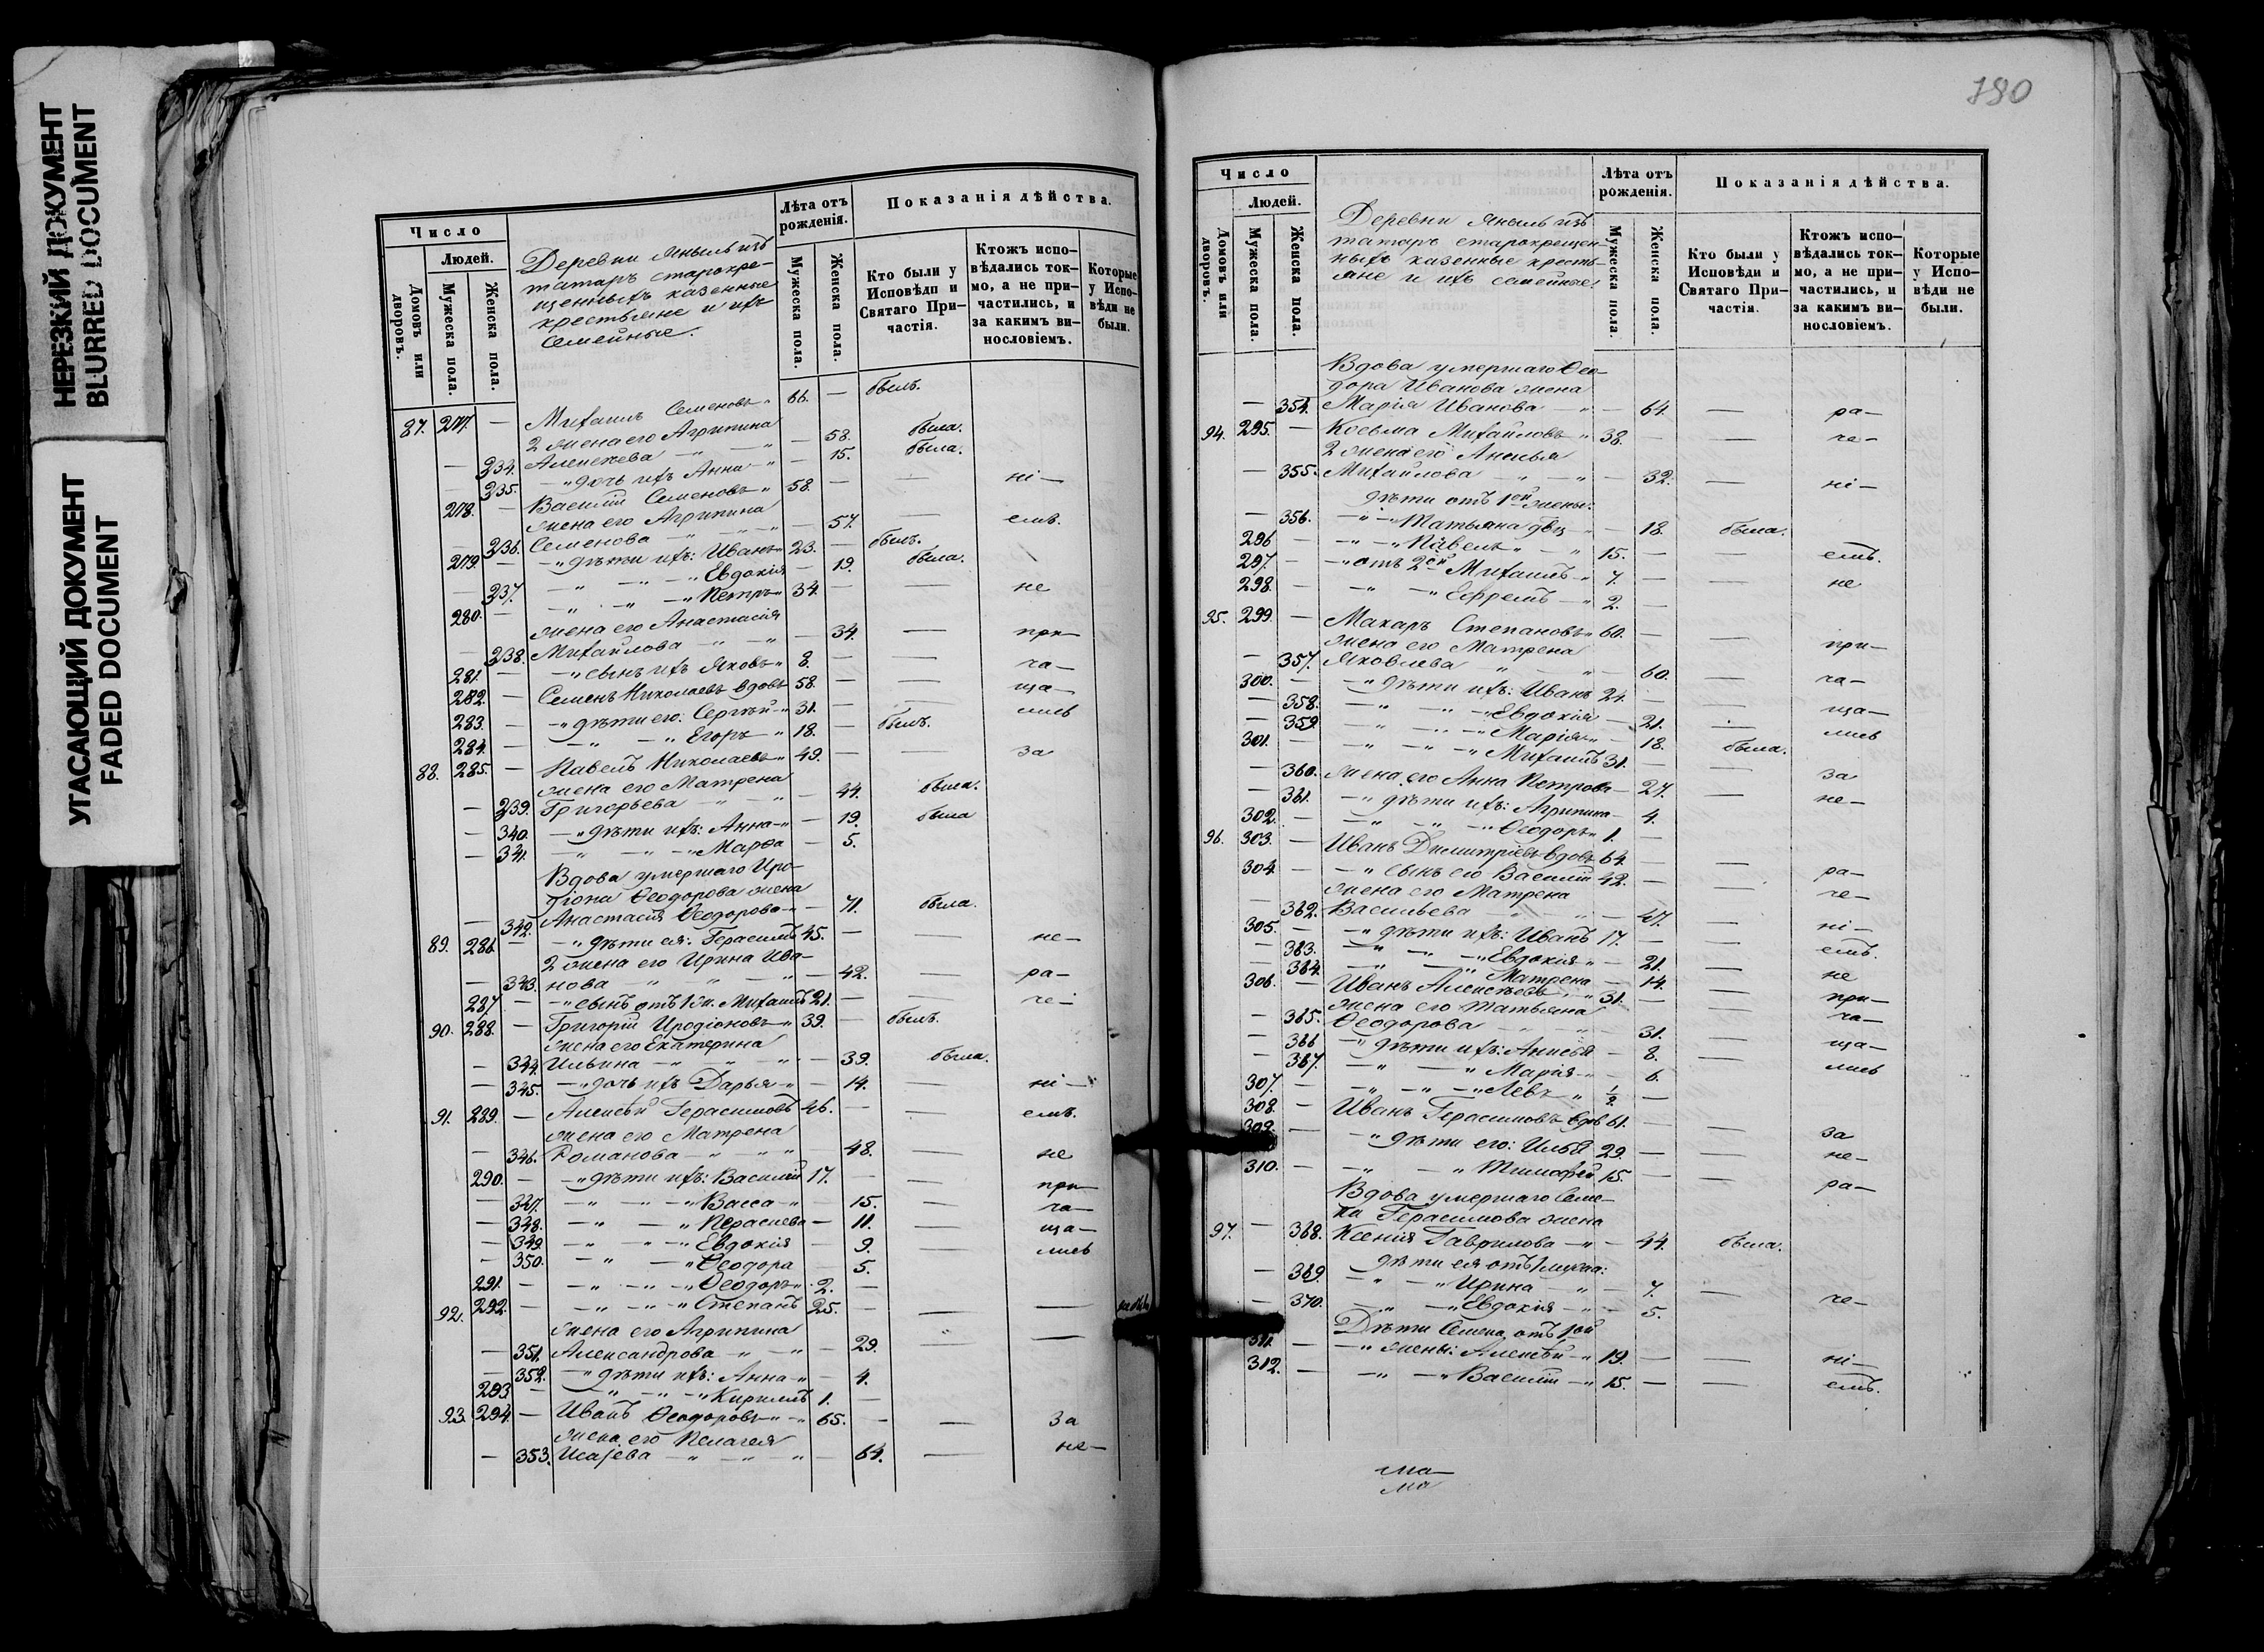 НЕРЕЗКИЙ ДОКУМЕНТ
BLURRED DOCUMENT
УГАСАЮЩИЙ ДОКУМЕНТ
FADED DOCUMENT
Число
Людей.
Домовъ или дворовъ.
Мужеска пола.
Женска пола.
Деревни Яныль изъ
татаръ старокре-
щенныхъ казенные
крестьяне и ихъ
семейные.
Лѣта отъ рожденія.
Мужеска пола.
Женска пола.
Показанія дѣйства.
Кто были у Исповѣди и Святаго Причастія.
Ктожъ исповѣдались токмо, а не причастились, и за какимъ винословіемъ.
Которые у Исповѣди не были.
87. 277. — Михаилъ Семеновъ 66. — былъ.
2 жена его Агрипина
— 334. Алексѣева — 58. была.
— 335. — " дочь ихъ Анна — 15. была.
278. — Василій Семеновъ 58. — — ні—
жена его Агрипина
— 336. Семенова — 57. — емъ.
279. — — " дѣти ихъ: Иванъ 23. — былъ.
— 337. — " — " Евдокія — 19. была.
280. — — " — " Петръ 34. — — не
жена его Анастасія
— 338. Михайлова — 34. — при—
281. — — " сынъ ихъ Яковъ 8. — — ча—
282. — Семенъ Николаевъ вдовъ 58. — — ща—
283. — — " дѣти его: Сергѣй 31. — — лись
284. — — " — " Егоръ 18. — былъ.
88. 285. — Павелъ Николаевъ 49. — — за
жена его Матрена
— 339. Григорьева — 44. была.
— 340. — " дѣти ихъ: Анна — 19. была
— 341. — " — " Марѳа — 5.
Вдова умершаго Иро-
діона Ѳеодорова жена
— 342. Анастасія Ѳеодорова — 71. была.
89. 286. — — " дѣти ея: Герасимъ 45. — — не—
2 жена его Ирина Ива-
— 343. нова — 42. — ра—
287. — — " сынъ отъ 1 ж. Михаилъ 21. — — че—
90. 288. — Григорій Иродіоновъ 39. — былъ.
жена его Екатерина
— 344. Ильина — 39. была.
— 345. — " дочь ихъ Дарья — 14. — ні—
91. 289. — Алексѣй Герасимовъ 46. — — емъ.
жена его Матрена
— 346. Романова — 48. — не
290. — — " дѣти ихъ: Василій 17. — — при—
— 347. — " — " Васса — 15. — ча—
— 348. — " — " Парасцева — 11. — ща—
— 349. — " — " Евдокія — 9. — лись
— 350. — " — " Ѳеодора — 5.
291. — — " — " Ѳеодоръ 2. —
92. 292. — — " — " Степанъ 25. — — —
жена его Агрипина
— 351. Александрова — 29. — —
— 352. — " дѣти ихъ: Анна — 4.
293. — — " — " Кириллъ 1. —
93. 294. — Иванъ Ѳеодоровъ 65. — — за
жена его Пелагея
— 353. Исаіева — 64. — не—
180
Число
Людей.
Домовъ или дворовъ.
Мужеска пола.
Женска пола.
Деревни Яныль изъ
татаръ старокрещен-
ныхъ казенные кресть-
яне и ихъ семейные.
Лѣта отъ рожденія.
Мужеска пола.
Женска пола.
Показанія дѣйства.
Кто были у Исповѣди и Святаго Причастія.
Ктожъ исповѣдались токмо, а не причастились, и за какимъ винословіемъ.
Которые у Исповѣди не были.
Вдова умершаго Ѳео-
дора Иванова жена
— 354. Марія Иванова — 64. — ра—
94. 295. — Косьма Михайловъ 38. — — че—
2 жена его Анисья
— 355. Михайлова — 32. — ні—
дѣти отъ 1ой жены:
— 356. — " — " Татьяна двц — 18. была.
296 — — " — " Павелъ 15. — — емъ.
297. — — " отъ 2ой Михаилъ 7. — — не
298. — — " — " Ефремъ 2. —
95. 299. — Макаръ Степановъ 60. — — при—
жена его Матрена
— 357. Яковлева — 60. — ча—
300. — — " дѣти ихъ: Иванъ 24. — — ща—
— 358. — " — " Евдокія — 21. — лись
— 359 — " — " Марія — 18. была.
301. — — " — " Михаилъ 31. — — за
— 360. жена его Анна Петрова — 27. — не—
— 361. — " дѣти ихъ: Агрипина — 4.
302. — — " — " Ѳеодоръ 1. —
96. 303. — Иванъ Димитріевъ вдовъ 64. — — ра—
304. — — " сынъ его Василій 42. — — че—
жена его Матрена
— 362. Васильева — 47. — ні—
305. — — " дѣти ихъ: Иванъ 17. — — емъ.
— 363. — " — " Евдокія — 21. — не
— 364. — " — " Матрена — 14. — при—
306. — Иванъ Алексѣевъ 31. — — ча—
жена его Татьяна
— 365. Ѳеодорова — 31. — ща—
— 366 — " дѣти ихъ: Анисья — 8. — лись
— 367. — " — " Марія — 6.
307. — — " — " Левъ ½ —
308. — Иванъ Герасимовъ вдов 61. — — за
309. — — " дѣти его: Илья 29. — — не—
310. — — " — " Тимофей 15. — — ра—
Вдова умершаго Семе-
на Герасимова жена
97. — 368. Ксенія Гаврилова — 44. была.
дѣти ея отъ 1 мужа:
— 369. — " — " Ирина — 7. — че—
— 370. — " — " Евдокія — 5.
Дѣти Семена отъ 1ой
311. — — " жены: Алексѣй 19. — — ні—
312. — — " — " Василій 15. — — емъ.